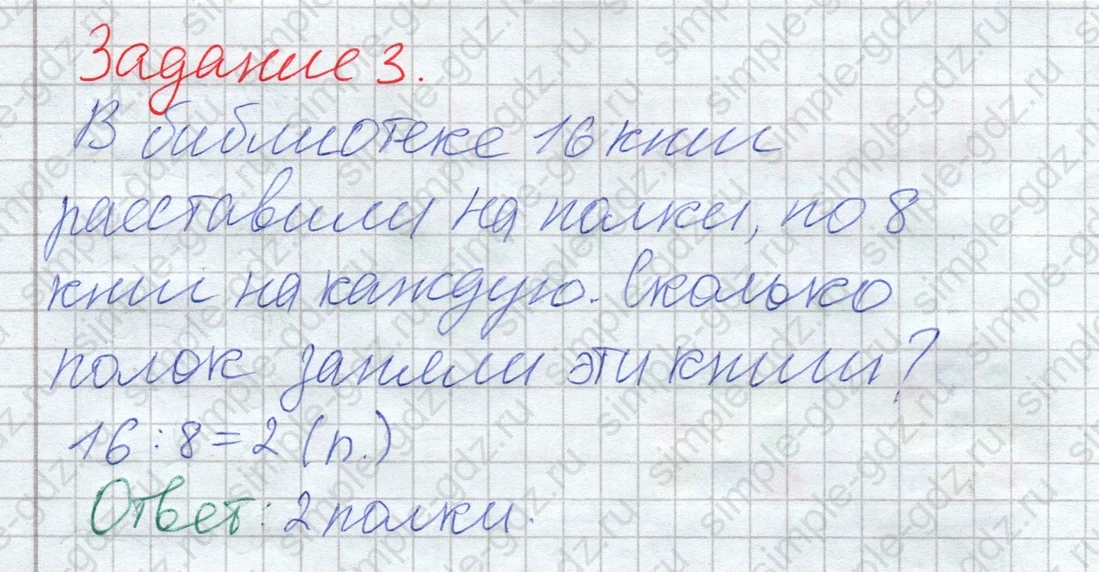 Задание 3.
В библиотеке 16 книг
расставили на полки, по 8
книг на каждую. Сколько
полок заняли эти книги?
16 : 8 = 2 (п.)
Ответ: 2 полки.
simple-gdz.ru